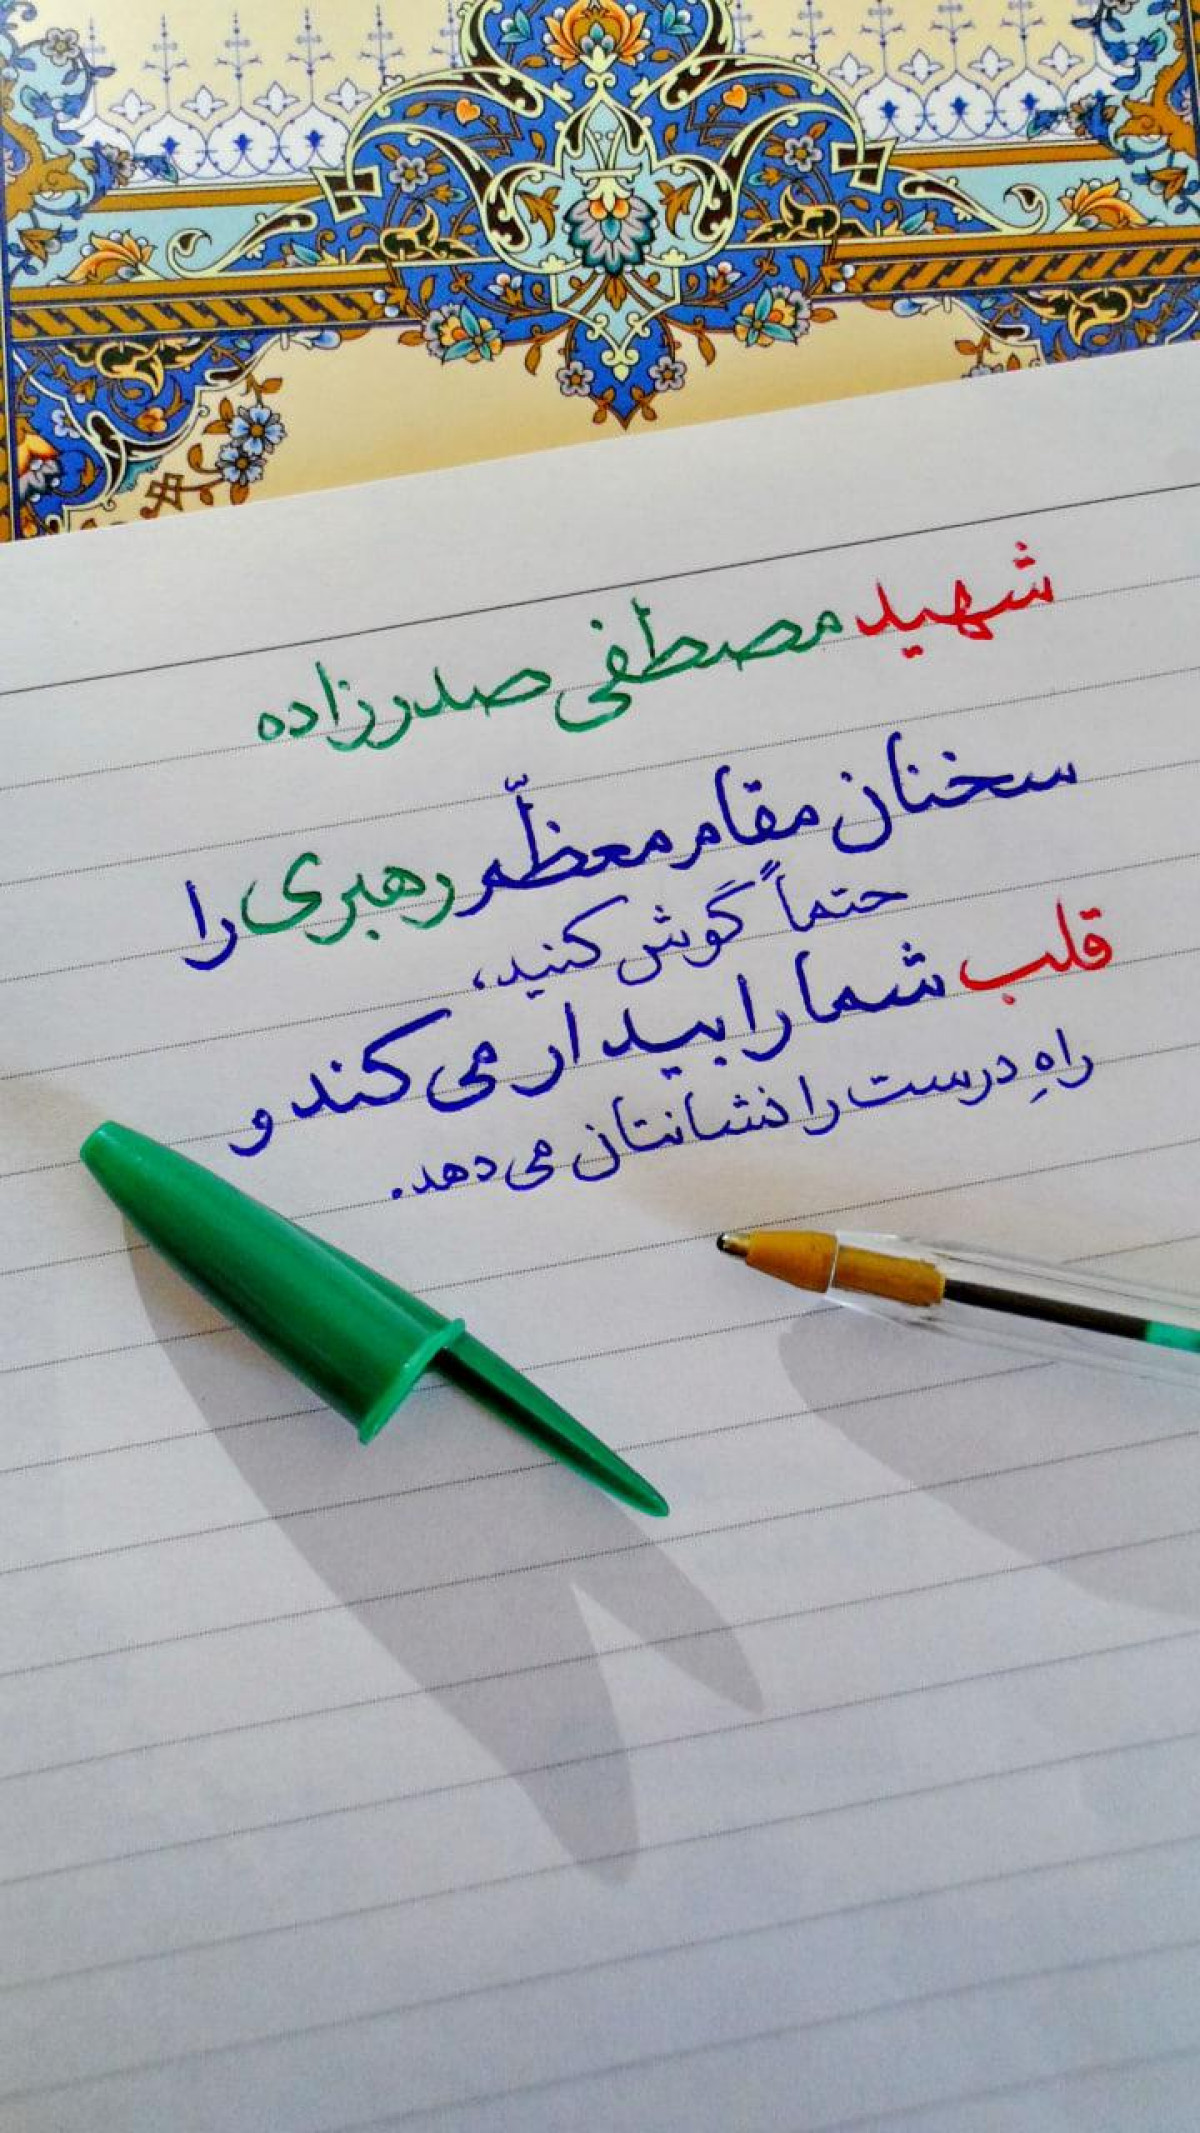 شهید مصطفی صدرزاده
سخنان مقام معظّم رهبری را
حتماً گوش کنید،
قلب شما را بیدار می‌کند و
راهِ درست را نشانتان می‌دهد.